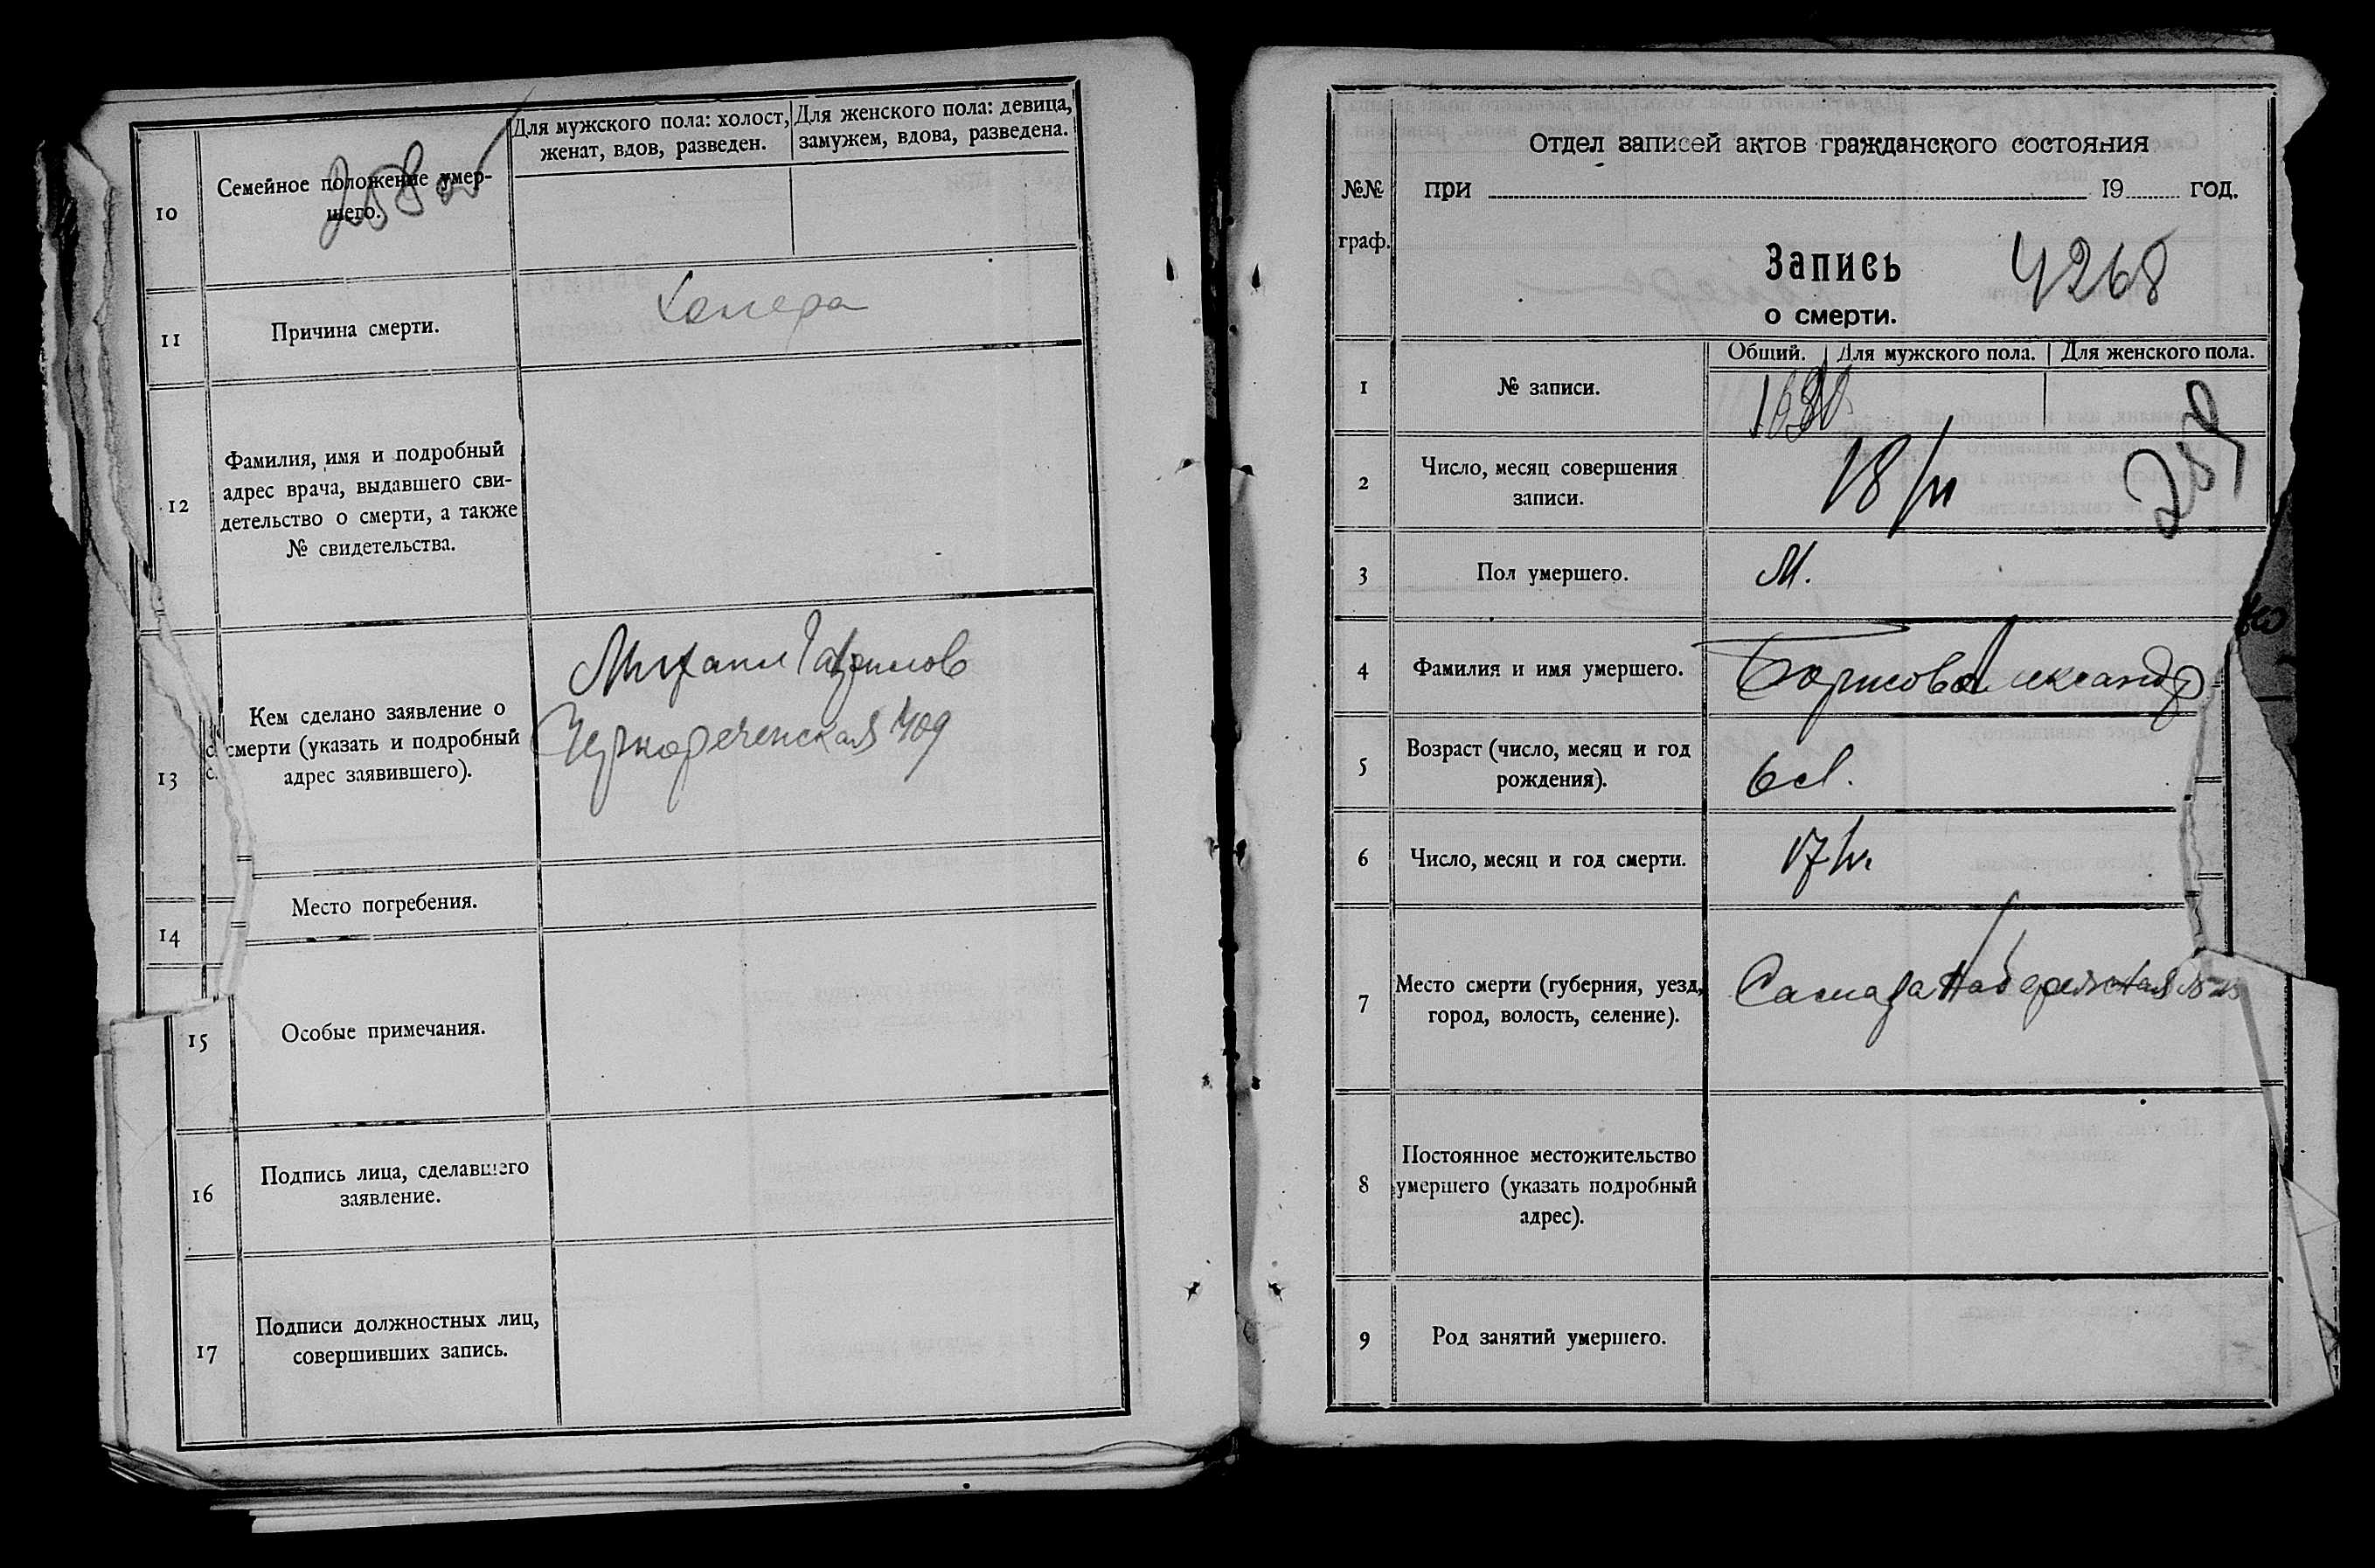 10
Семейное положение умер-
шего.
258 об
Для мужского пола: холост,
женат, вдов, разведен.
Для женского пола: девица,
замужем, вдова, разведена.
11
Причина смерти.
Холера
12
Фамилия, имя и подробный
адрес врача, выдавшего сви-
детельство о смерти, а также
№ свидетельства.
13
Кем сделано заявление о
смерти (указать и подробный
адрес заявившего).
Михаил Гаврилов
Чернореченская 109
14
Место погребения.
15
Особые примечания.
16
Подпись лица, сделавшего
заявление.
17
Подписи должностных лиц,
совершивших запись.
№№
граф.
Отдел записей актов гражданского состояния
при 19 год.
Запись 4268
о смерти.
1
№ записи.
Общий. Для мужского пола. Для женского пола.
2
Число, месяц совершения
записи.
18/VI
3
Пол умершего.
М.
4
Фамилия и имя умершего.
Борисов Александр
5
Возраст (число, месяц и год
рождения).
6
Число, месяц и год смерти.
17/VI
7
Место смерти (губерния, уезд,
город, волость, селение).
Самара Набережная №
8
Постоянное местожительство
умершего (указать подробный
адрес).
9
Род занятий умершего.